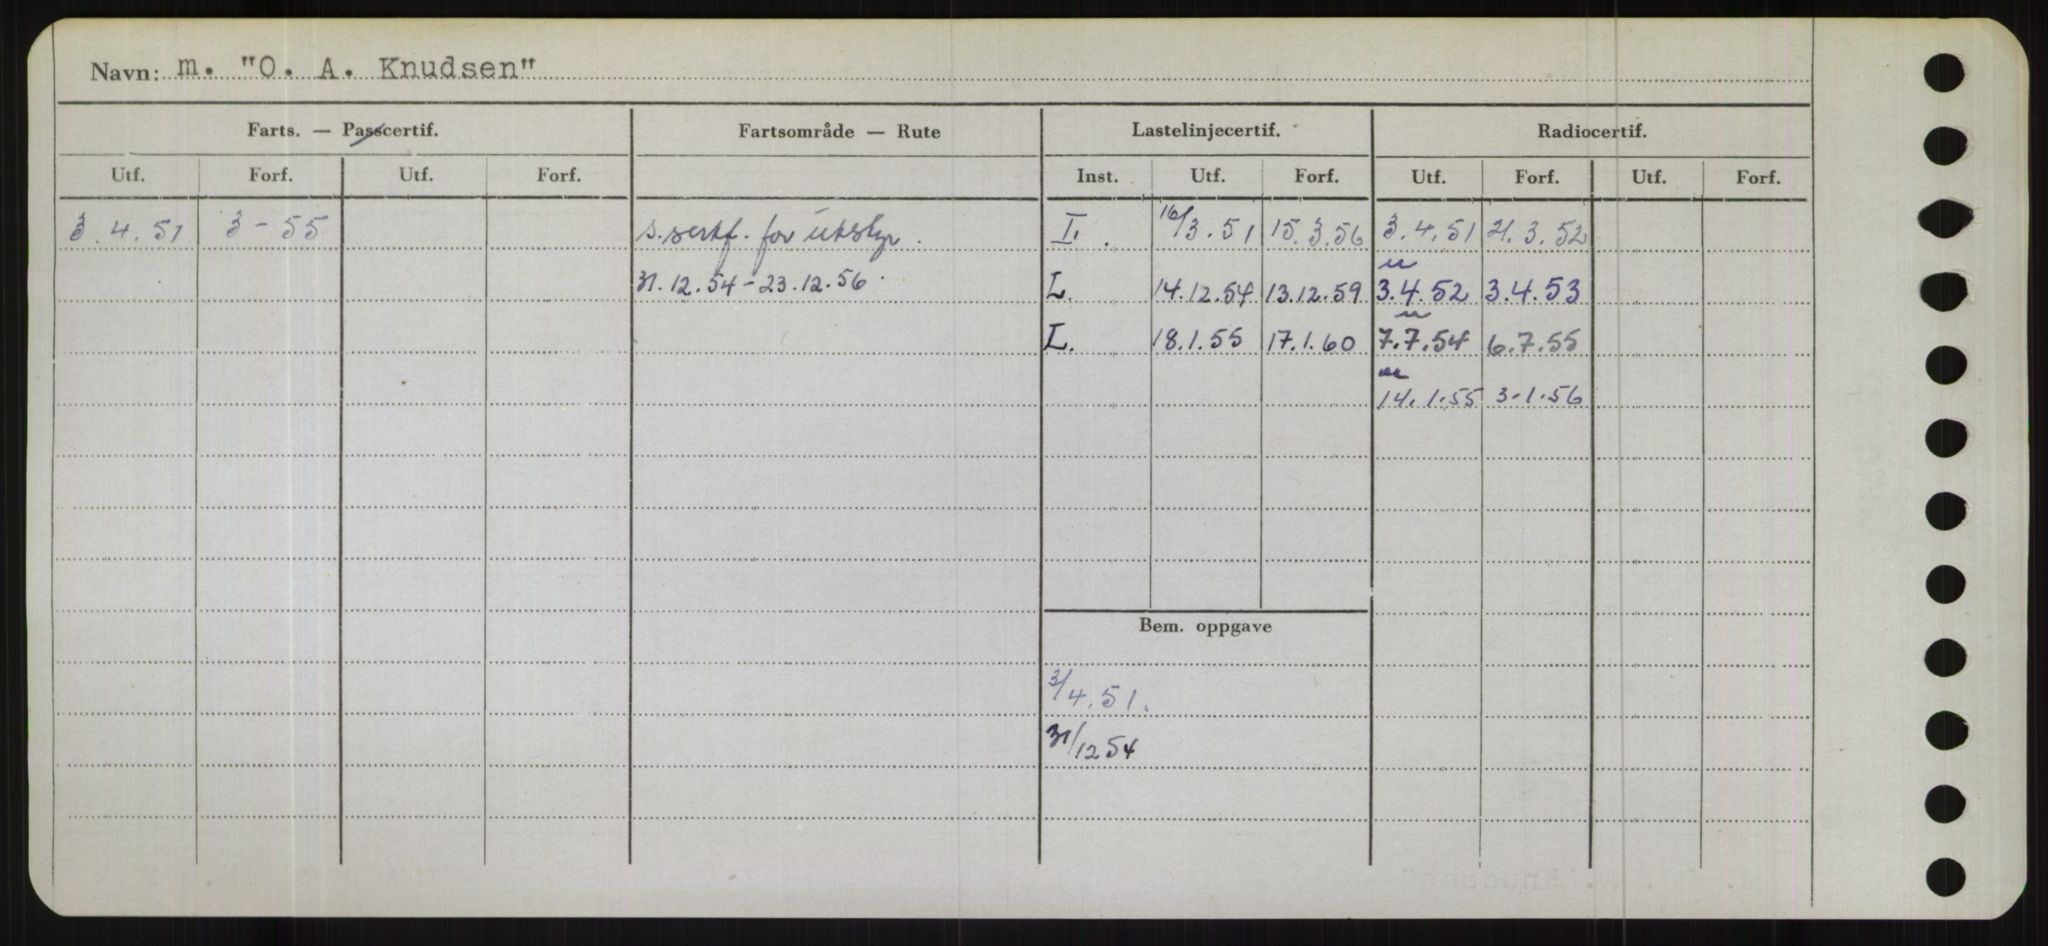 Navn: m. "O. A. Knudsen"
Farts. — Passcertif. Fartsområde — Rute Lastelinjecertif. Radiocertif.
Utf. Forf. Utf. Forf. Inst. Utf. Forf. Utf. Forf. Utf. Forf.
3.4.51 3-55 s.sertf. for utstyr. I. 16/3.51 15.3.56 3.4.51 21.3.52
31.12.54-23.12.56. L. 14.12.54 13.12.59 3.4.52 3.4.53
L. 18.1.55 17.1.60 7.7.54 6.7.55
14.1.55 3-1.56
Bem. oppgave
3/4.51.
31/12 54